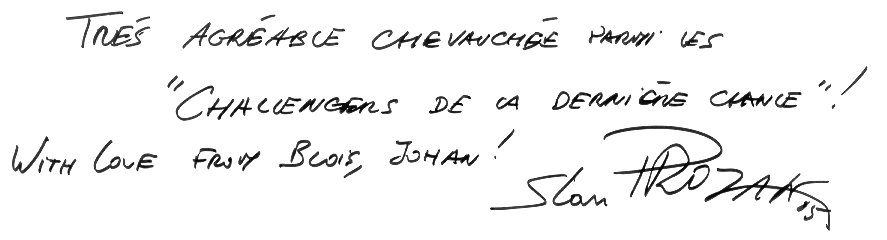 TRÉS AGRÉABLE CHEVAUCHÉE PARMI LES
"CHALLENGERS DE LA DERNIÈRE CHANCE"!
WITH LOVE FROM BLOIS, JOHAN!
Stan